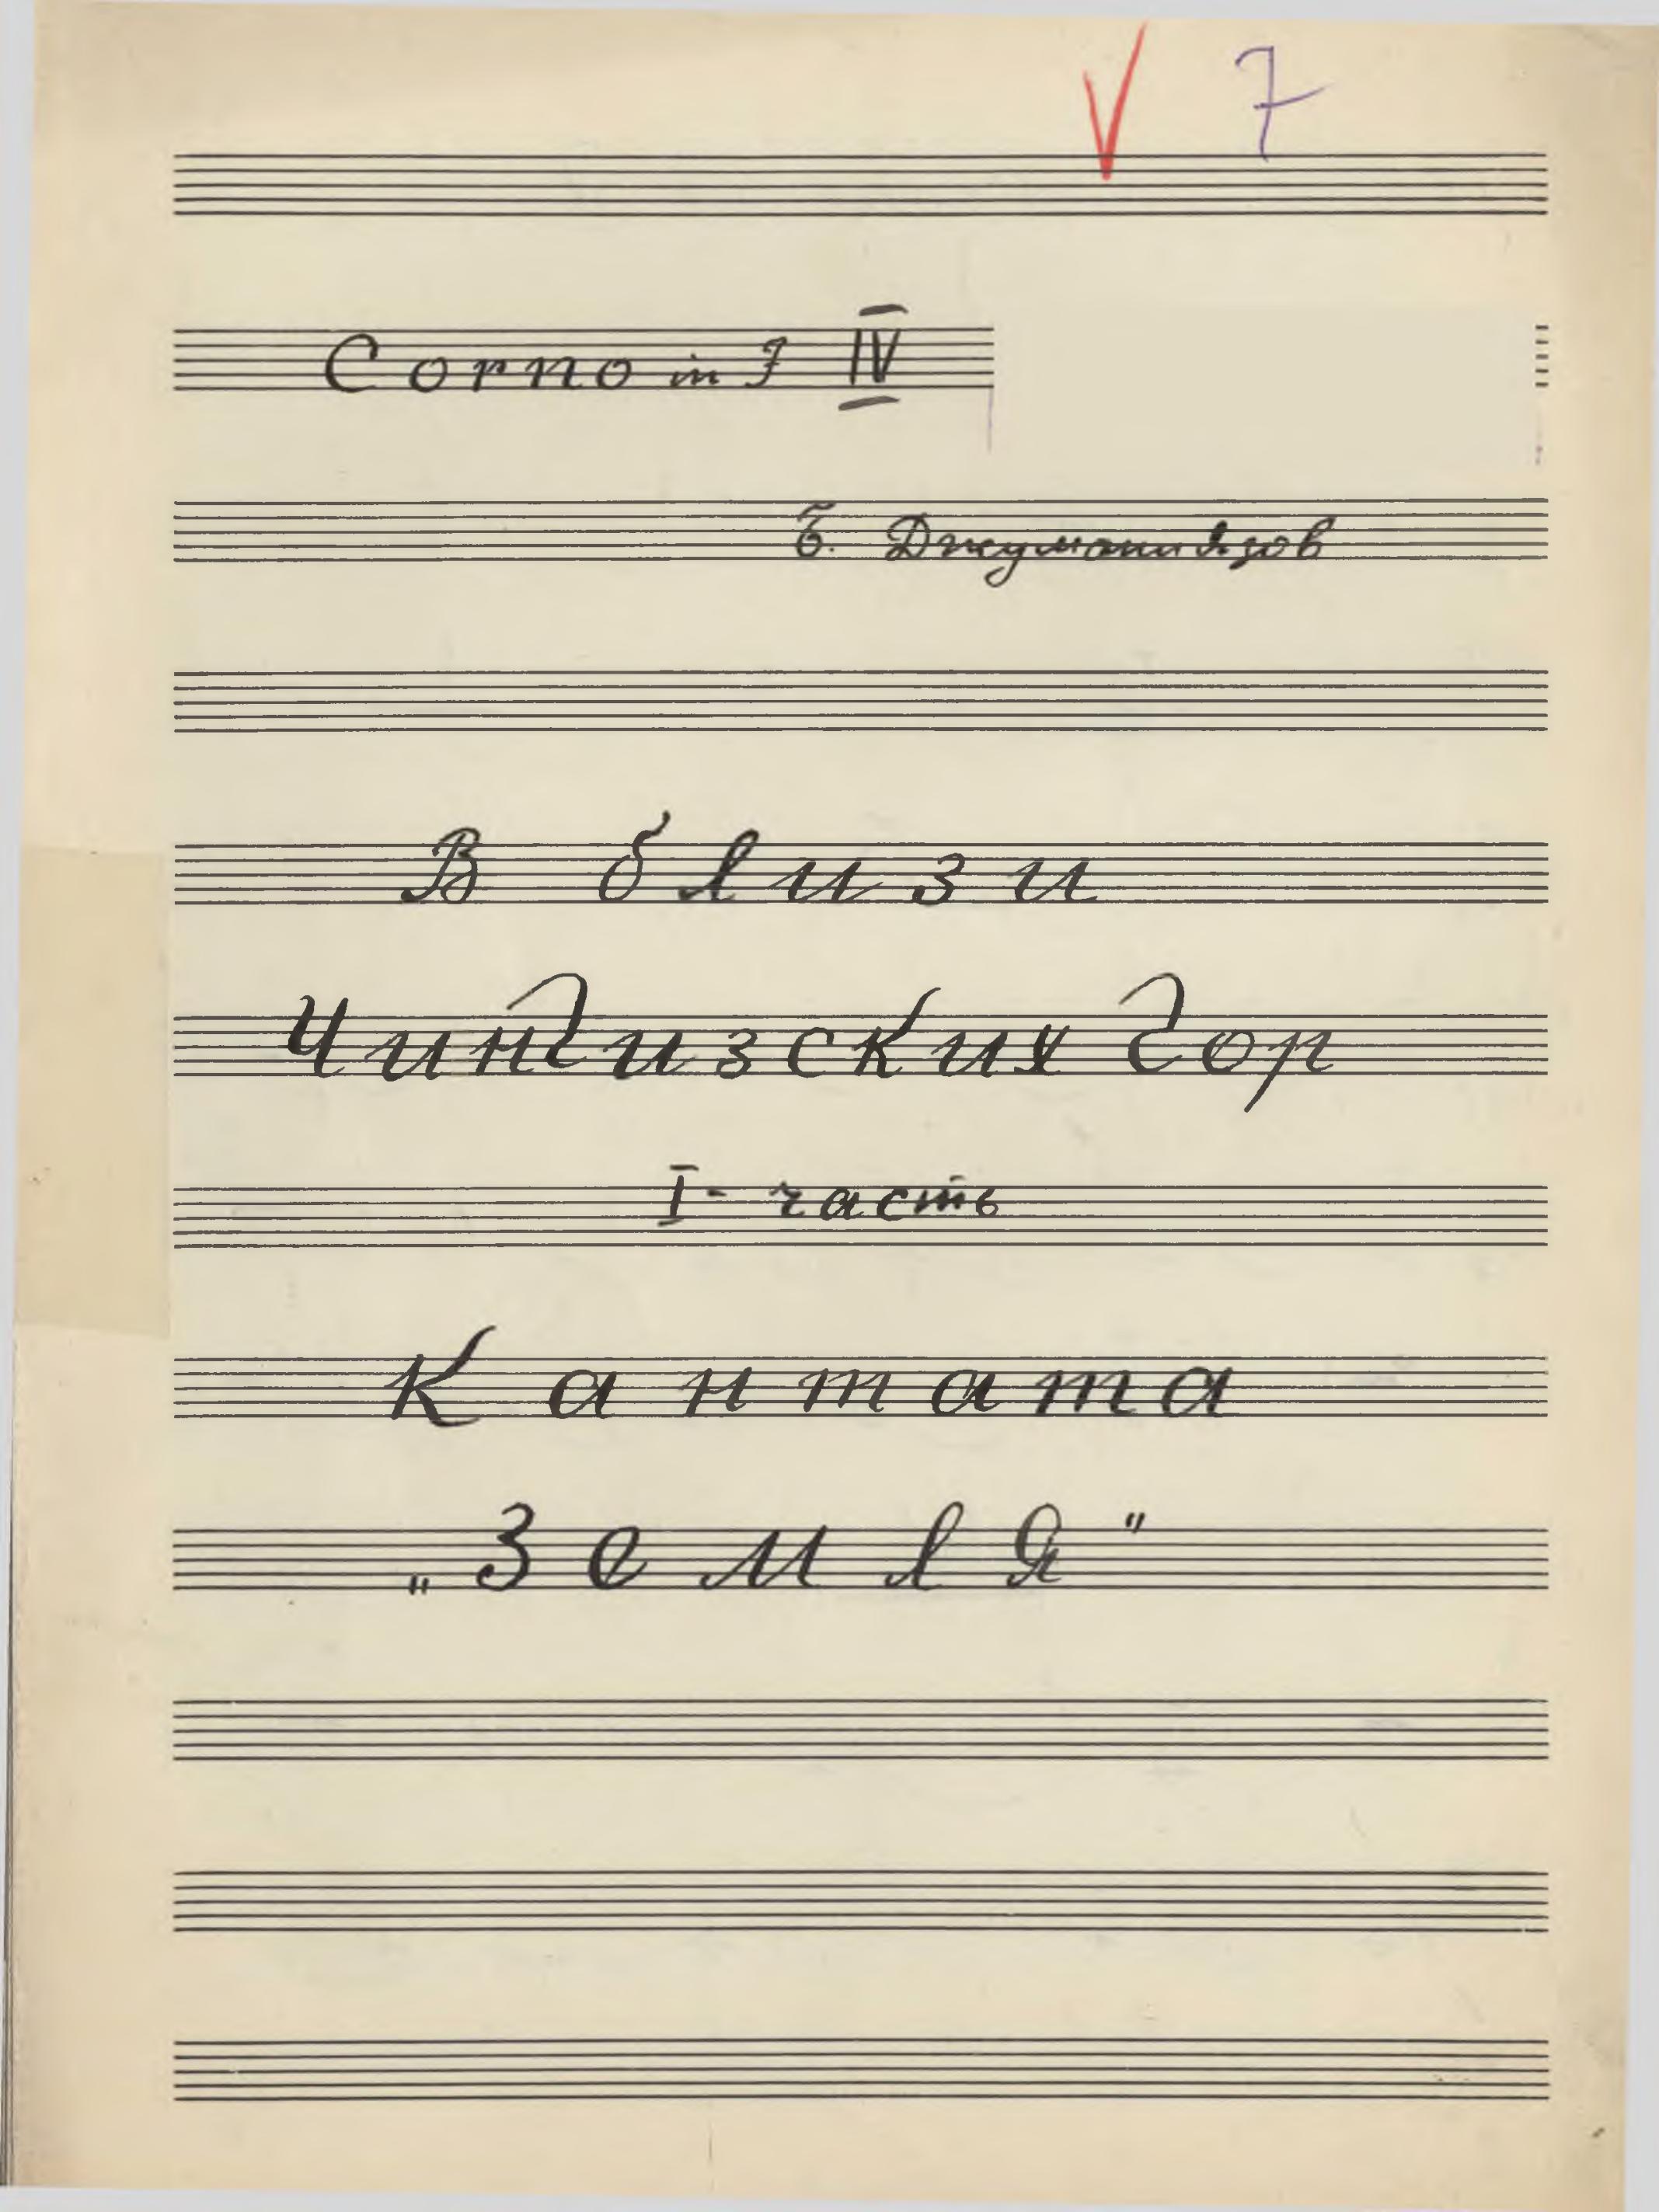 V 7
Corno in F IV
Б. Джуманиязов
В близи
Чингизских гор
I - часть
Кантата
„Земля"